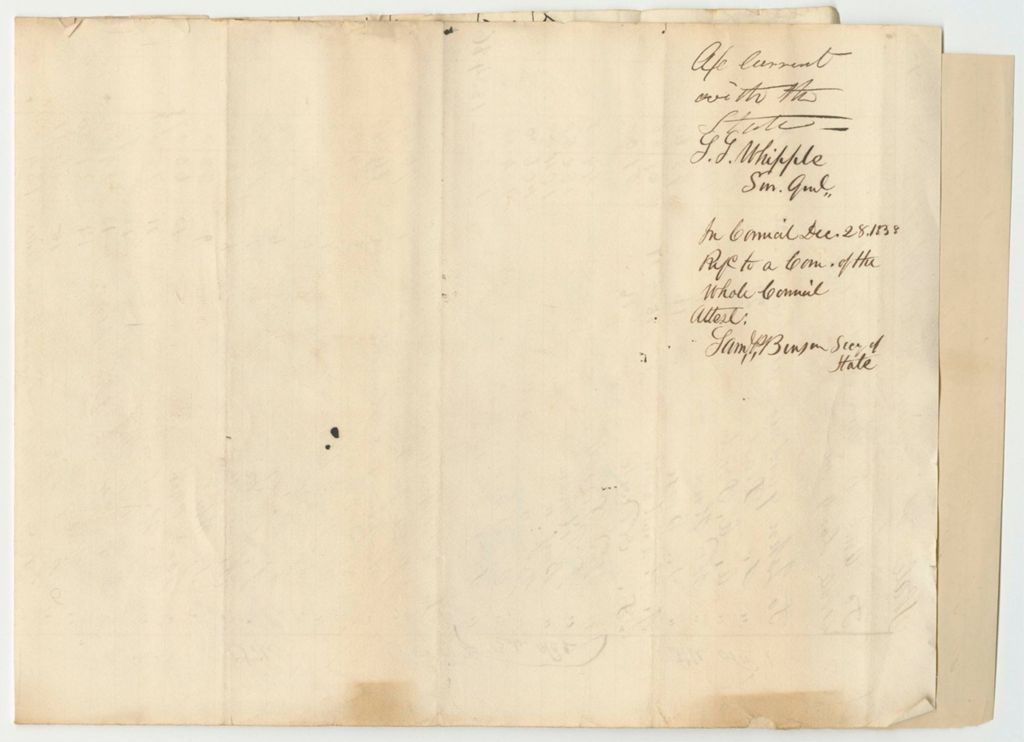 A/c Current
with the
State
S. S. Whipple
Sur. Genl,,
In Council Dec. 28. 1838
Refd to a Com. of the
Whole Council
Attest:
Saml P. Benson Secy of
State